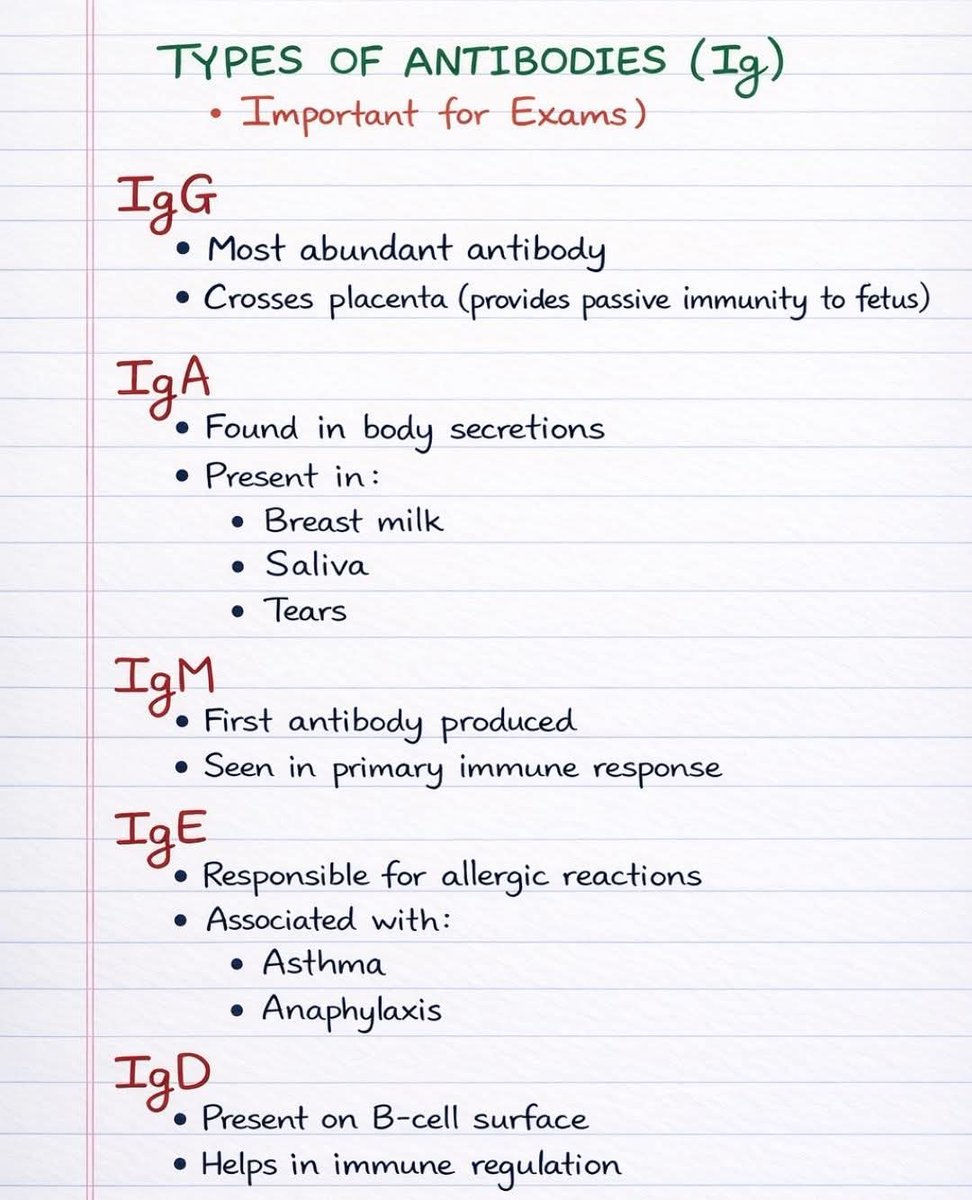 TYPES OF ANTIBODIES (Ig)
• Important for Exams)
IgG
• Most abundant antibody
• Crosses placenta (provides passive immunity to fetus)
IgA
• Found in body secretions
• Present in:
• Breast milk
• Saliva
• Tears
IgM
• First antibody produced
• Seen in primary immune response
IgE
• Responsible for allergic reactions
• Associated with:
• Asthma
• Anaphylaxis
IgD
• Present on B-cell surface
• Helps in immune regulation